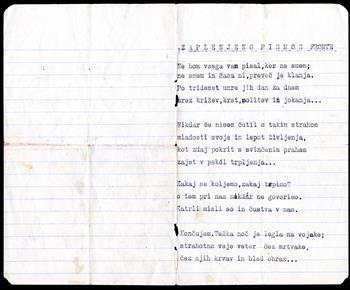 ZAPLENJENO PISMO S FRONTE
Ne bom vsega vam pisal, ker ne smem;
ne smem in časa ni, preveč je klanja.
Po trideset umre jih dan za dnem
brez križev, krst, molitev in jokanja...
Nikdar še nisem čutil s takim strahom
mladosti svoje in lepot življenja,
kot zdaj pokrit s svinčenim prahom
zajet v pekél trpljenja...
Zakaj se koljemo, zakaj trpimo?
o tem pri nas nikdár ne govorimo.
Zatrli misli so in čustva v nas.
Končujem. Težka noč je legla na vojake;
strahotno veje veter čez mrtvake,
čez njih krvav in bled obraz...